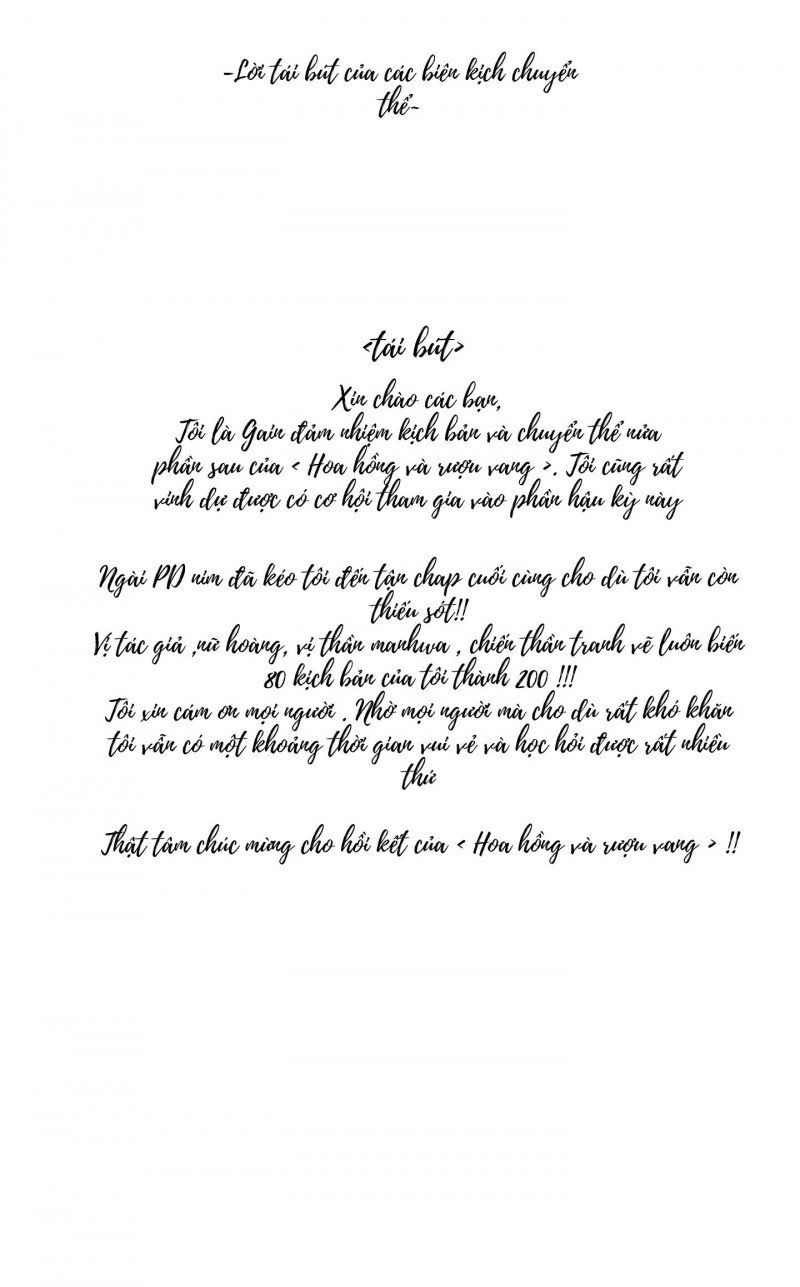 -Lời tái bút của các biên kịch chuyển
thể-
<tái bút>
Xin chào các bạn,
Tôi là Gain đảm nhiệm kịch bản và chuyển thể nửa
phần sau của < Hoa hồng và rượu vang >. Tôi cũng rất
vinh dự được có cơ hội tham gia vào phần hậu kỳ này
Ngài PD nim đã kéo tôi đến tận chap cuối cùng cho dù tôi vẫn còn
thiếu sót!!
Vị tác giả ,nữ hoàng, vị thần manhwa , chiến thần tranh vẽ luôn biến
80 kịch bản của tôi thành 200 !!!
Tôi xin cám ơn mọi người . Nhờ mọi người mà cho dù rất khó khăn
tôi vẫn có một khoảng thời gian vui vẻ và học hỏi được rất nhiều
thứ
Thật tâm chúc mừng cho hồi kết của < Hoa hồng và rượu vang > !!